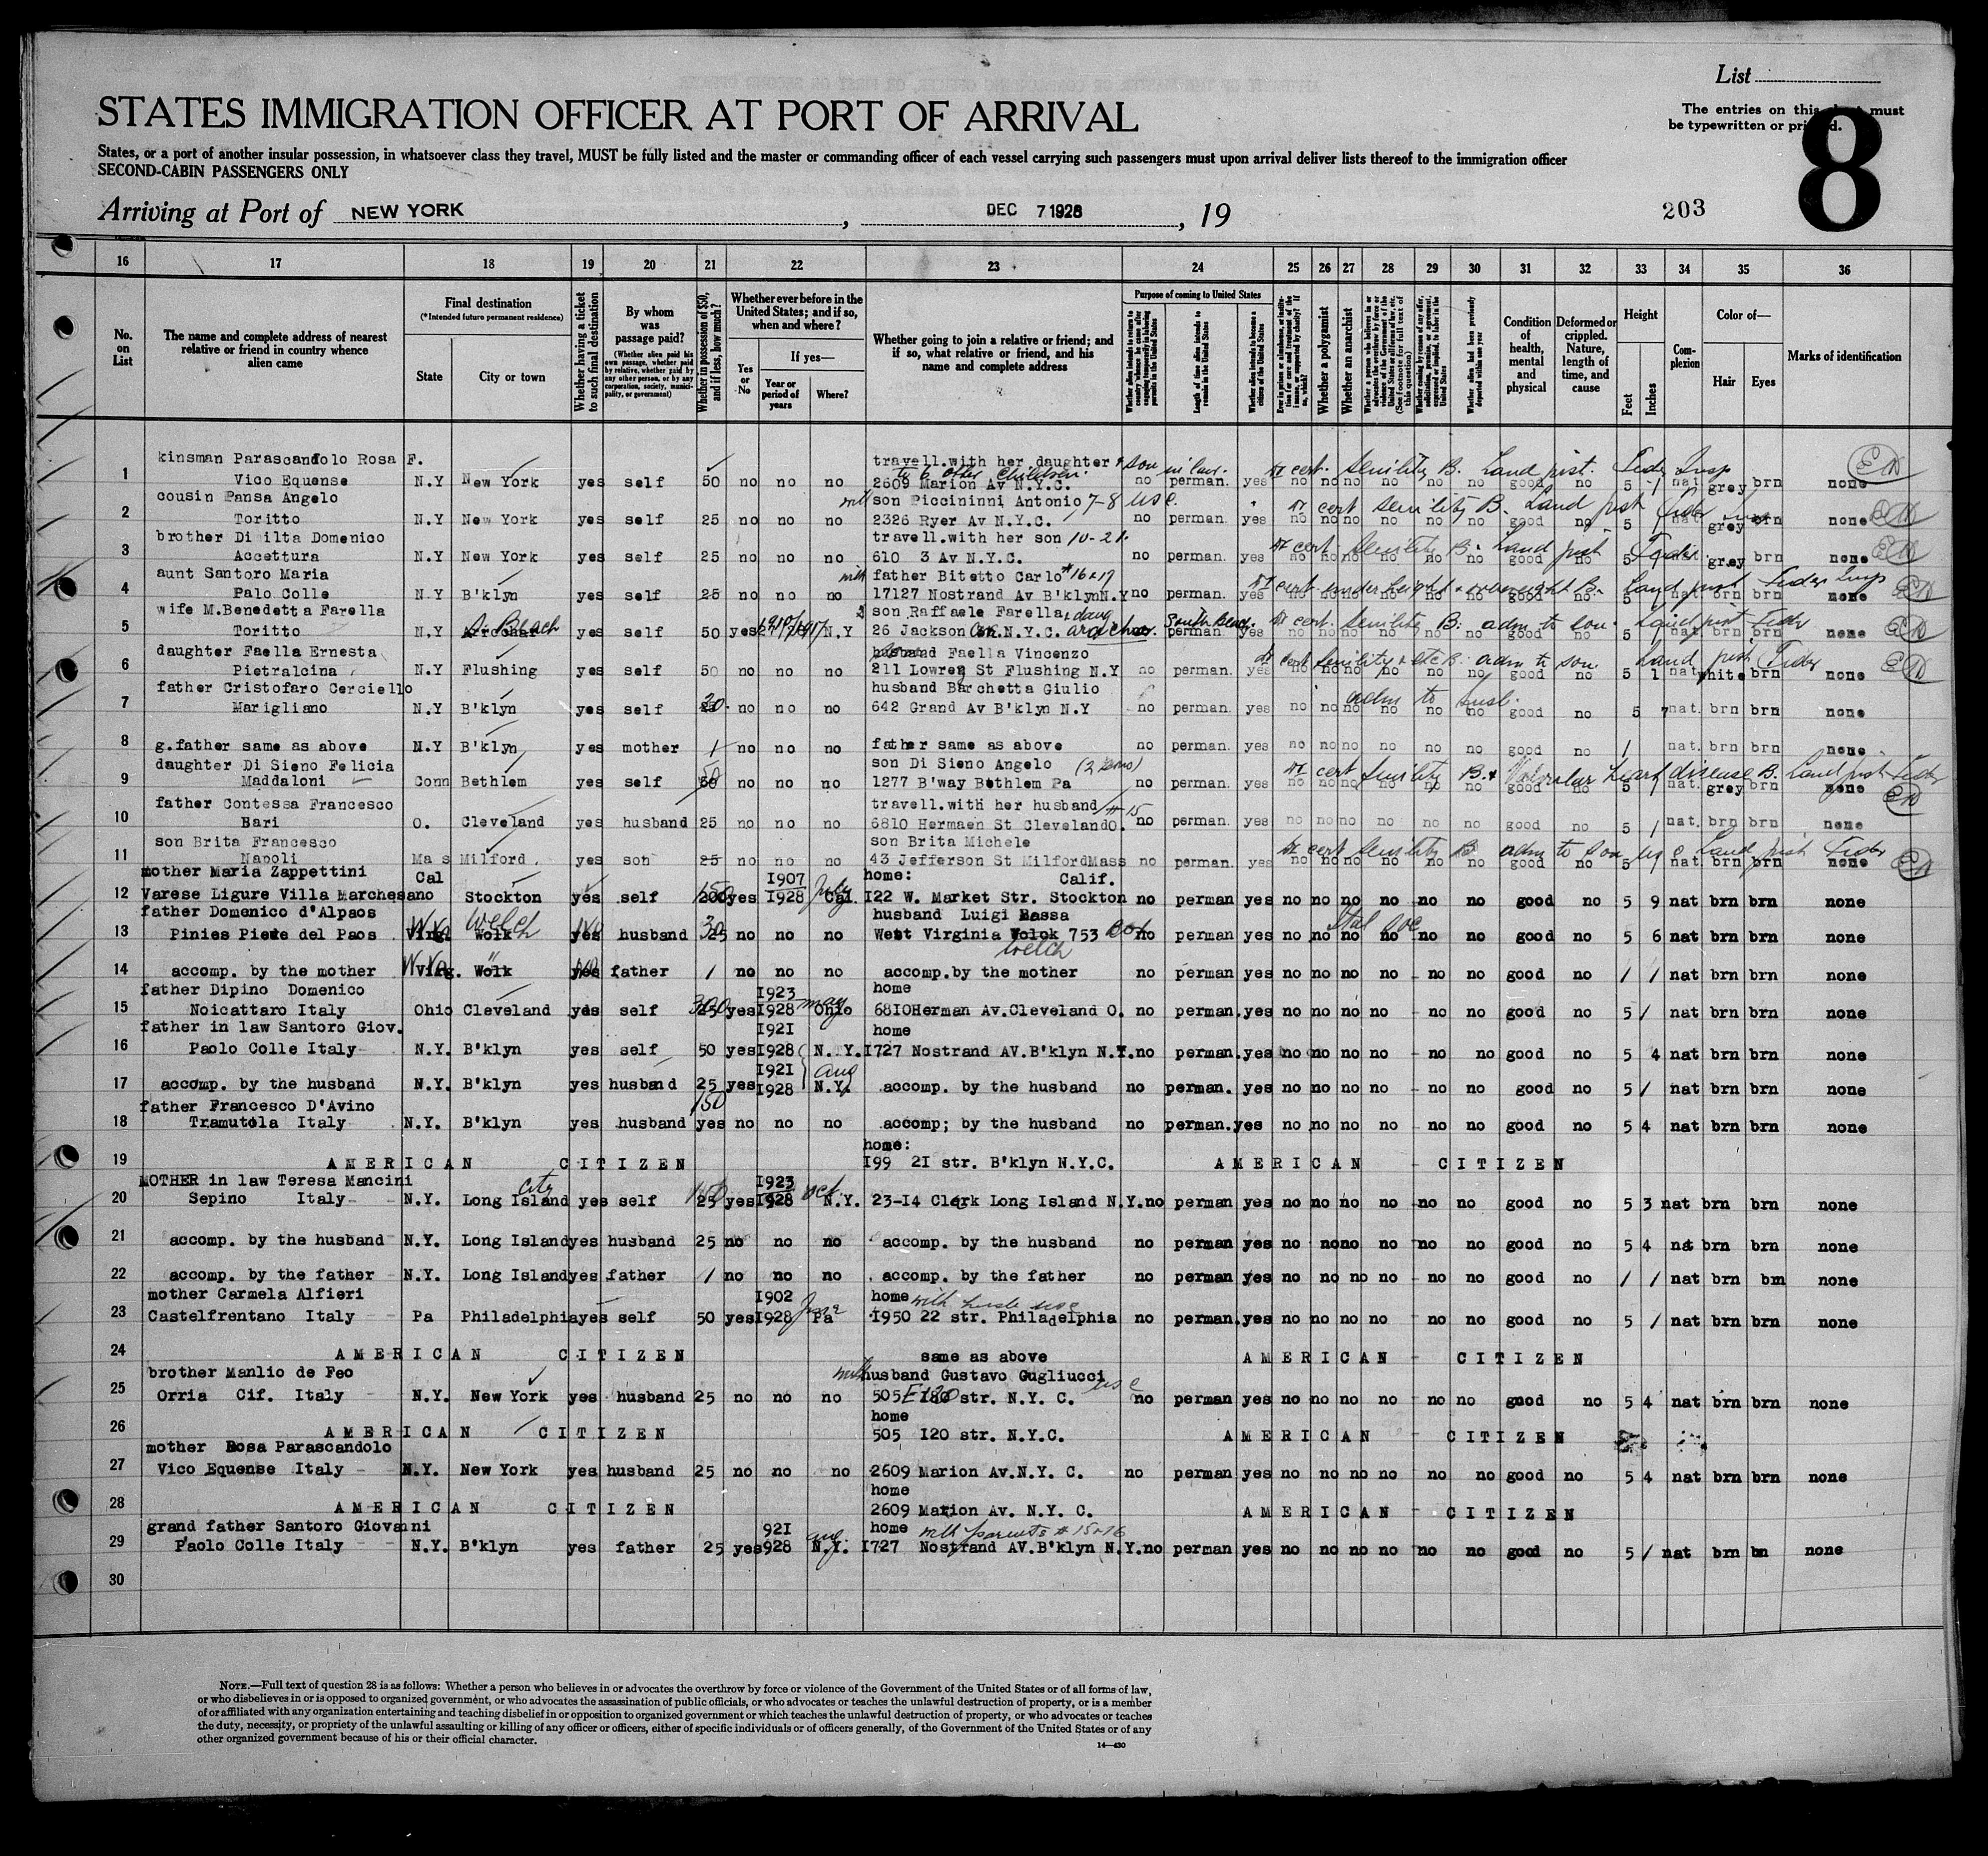 List
STATES IMMIGRATION OFFICER AT PORT OF ARRIVAL
The entries on this must
be typewritten or
8
States, or a port of another insular possession, in whatsoever class they travel, MUST be fully listed and the master or commanding officer of each vessel carrying such passengers must upon arrival deliver lists thereof to the immigration officer
SECOND-CABIN PASSENGERS ONLY
Arriving at Port of NEW YORK , DEC 7 1928 , 19
203
16 17 18 19 20 21 22 23 24 25 26 27 28 29 30 31 32 33 34 35 36
No. on List
The name and complete address of nearest relative or friend in country whence alien came
Final destination
(*Intended future permanent residence)
State
City or town
Whether having a ticket to such final destination
By whom was passage paid?
(Whether alien paid his own passage, whether paid by relative, whether paid by any other person, or by any corporation, society, municipality, or government)
Whether in possession of $50, and if less, how much?
Whether ever before in the United States; and if so, when and where?
Yes or No
If yes—
Year or period of years
Where?
Whether going to join a relative or friend; and if so, what relative or friend, and his name and complete address
Purpose of coming to United States
Length of time alien intends to remain in the United States
Whether alien intends to become a citizen of the United States
Whether a polygamist
Whether an anarchist
Whether alien had been previously deported within one year
Condition of health, mental and physical
Deformed or crippled. Nature, length of time, and cause
Height
Feet
Inches
Complexion
Color of—
Hair
Eyes
Marks of identification
kinsman Parascandolo Rosa F. travell.with her daughter & son in law.
1 Vico Equense N.Y New York yes self 50 no no no 2609 Marion Av N.Y.C. no perman. yes no no no no no no good no 5 1 nat grey brn none
cousin Pansa Angelo son Piccininni Antonio 7-8 usc.
2 Toritto N.Y New York yes self 25 no no no 2326 Ryer Av N.Y.C. no perman. yes no no no no no no good no 5 1 nat grey brn none
brother Di ilta Domenico travell.with her son 10-21.
3 Accettura N.Y New York yes self 25 no no no 610 3 Av N.Y.C. no perman. yes no no no no no no good no 5 grey brn none
aunt Santoro Maria father Bitetto Carlo #16&17
4 Palo Colle N.Y B'klyn yes self 25 no no no 17127 Nostrand Av B'klynN.Y no perman. yes no no no no no no good no 5 nat brn brn none
wife M.Benedetta Farella son Raffaele Farella & daug
5 Toritto N.Y Beach yes self 50 yes N.Y 26 Jackson N.Y.C. South Beach. perman. yes no no no no no no good no 5 nat brn brn none
daughter Faella Ernesta Faella Vincenzo
6 Pietralcina N.Y Flushing yes self 50 no no no 211 Lowrey St Flushing N.Y no perman. yes no no no no no no good no 5 1 nat white brn none
father Cristofaro Cerciello husband Barchetta Giulio adm to husb.
7 Marigliano N.Y B'klyn yes self 20. no no no 642 Grand Av B'klyn N.Y no perman. yes no no no no no no good no 5 7 nat. brn brn none
8 g.father same as above N.Y B'klyn yes mother / no no no father same as above no perman. yes no no no no no no good no / nat. brn brn none
daughter Di Sieno Felicia son Di Sieno Angelo
9 Maddaloni Conn Bethlem yes self 50 no no no 1277 B'way Bethlem Pa no perman. yes no no no no no no good no 5 1 nat. grey brn none
father Contessa Francesco travell.with her husband #15
10 Bari O. Cleveland yes husband 25 no no no 6810 Hermaen St ClevelandO. no perman. yes no no no no no no good no 5 / nat. brn brn none
son Brita Francesco son Brita Michele
11 Napoli Mas Milford. yes son 25 no no no 43 Jefferson St MilfordMass no perman. yes no no no no no no good no 5 nat brn brn none
mother Maria Zappettini Cal 1907 home: Calif.
12 Varese Ligure Villa Marchesano Stockton yes self 150 200 yes 1928 July Cal. 122 W. Market Str. Stockton no perman yes no no no no no no good no 5 9 nat brn brn none
father Domenico d'Alpaos husband Luigi Bassa
13 Pinies Pieve del Paos W Va Virg. Welch Wolk No yes husband 30 25 no no no West Virginia Wolok 753 Box Welch no perman yes no no no no no no good no 5 6 nat brn brn none
14 accomp. by the mother W Va Virg. Wolk No yes father / no no no accomp.by the mother no perman yes no no no no no no good no / / nat brn brn none
father Dipino Domenico 1923 home
15 Noicattaro Italy Ohio Cleveland yes self 300 25 yes 1928 may Ohio 6810Herman Av.Cleveland O. no perman. yes no no no no no no good no 5 / nat brn brn none
father in law Santoro Giov. 1921 home
16 Paolo Colle Italy N.Y. B'klyn yes self 50 yes 1928 N.Y. 1727 Nostrand AV.B'klyn N.Y. no perman. yes no no no no no no good no 5 4 nat brn brn none
1921 aug
17 accomp. by the husband N.Y. B'klyn yes husband 25 yes 1928 N.Y. accomp. by the husband no perman. yes no no no no no no good no 5 / nat brn brn none
father Francesco D'Avino 150
18 Tramutola Italy N.Y. B'klyn yes husband yes no no no accomp; by the husband no perman. yes no no no no no no good no 5 4 nat brn brn none
home:
19 AMERICAN CITIZEN 199 21 str. B'klyn N.Y.C. AMERICAN - CITIZEN
MOTHER in law Teresa Mancini City 1923
20 Sepino Italy N.Y. Long Island yes self 150 25 yes 1928 oct N.Y. 23-14 Clerk Long Island N.Y. no perman yes no no no no no no good no 5 3 nat brn brn none
21 accomp. by the husband N.Y. Long Island yes husband 25 no no no accomp. by the husband no perman yes no no no no no no good no 5 4 nat brn brn none
22 accomp. by the father N.Y. Long Island yes father / no no no accomp. by the father no perman yes no no no no no no good no / / nat brn brn none
mother Carmela Alfieri 1902 home with
23 Castelfrentano Italy Pa Philadelphia yes self 50 yes 1928 June Pa 1950 22 str. Philadelphia no perman. yes no no no no no no good no 5 / nat brn brn none
24 AMERICAN CITIZEN same as above AMERICAN - CITIZEN
brother Manlio de Feo husband Gustavo Gugliucci usc
25 Orria Cif. Italy N.Y. New York yes husband 25 no no no 505 E 120 str. N.Y. C. no perman yes no no no no no no good no 5 4 nat brn brn none
home
26 AMERICAN CITIZEN 505 120 str. N.Y.C. AMERICAN - CITIZEN
mother Rosa Parascandolo
27 Vico Equense Italy N.Y. New York yes husband 25 no no no 2609 Marion Av.N.Y. C. no perman yes no no no no no no good no 5 4 nat brn brn none
home
28 AMERICAN CITIZEN 2609 Marion Av. N.Y. C. AMERICAN - CITIZEN
grand father Santoro Giovanni 921 home with parents # 15+16
29 Paolo Colle Italy N.Y. B'klyn yes father 25 yes 928 aug. N.Y. 1727 Nostrand AV.B'klyn N.Y. no perman yes no no no no no no good no 5 / nat brn bn none
30
NOTE.—Full text of question 28 is as follows: Whether a person who believes in or advocates the overthrow by force or violence of the Government of the United States or of all forms of law,
or who disbelieves in or is opposed to organized government, or who advocates the assassination of public officials, or who advocates or teaches the unlawful destruction of property, or is a member
of or affiliated with any organization entertaining and teaching disbelief in or opposition to organized government or which teaches the unlawful destruction of property, or who advocates or teaches
the duty, necessity, or propriety of the unlawful assaulting or killing of any officer or officers, either of specific individuals or of officers generally, of the Government of the United States or of any
other organized government because of his or their official character.
14—430